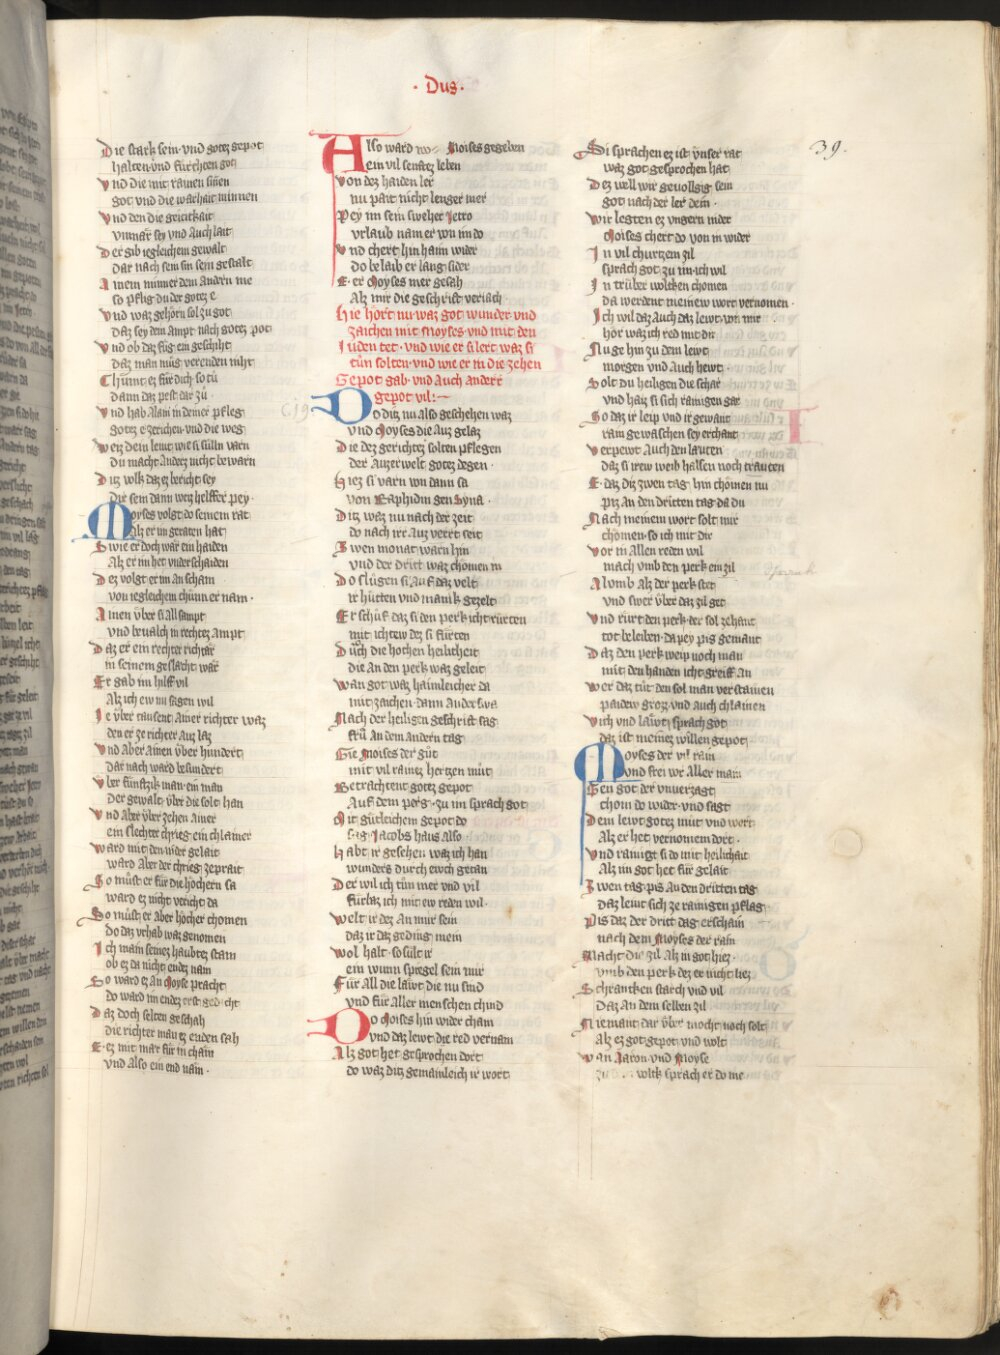 · Dus ·
39.
Die stark sein · vnd gotez gepot
halten · vnd fürchten got
Vnd die mit rainen sinen
got vnd die warhait minnen
Vnd den die geitichait
vnmär sey vnd Auch lait
Der gib iegleichem gewalt
dar nach sein sin sein gestalt
Ainem minner dem Andern me
so pflig du der gotez e
Vnd waz gehörn sol zu got
daz sey dein Ampt · nach gotez pot
Vnd ob daz füg · ein geschiht
daz man müg verenden niht
Chünnt ez für dich so tü
dann daz pest dar zü ·
Vnd hab Alain in deiner pfleg
gotez e zerichen · vnd die weg
Wez dein leut wie si sülln varn
du macht Anderz nicht bewarn
Ditz volk daz ez bericht sey
dir sein dann wetz helffer pey ·
Moyses volgt do seinem rat
Alz er im geraten hat
Swie er doch wär ein haiden
Alz er im het vnderschaiden
Dez volgt er im An scham
von iegleichem chünn er nam ·
Ainen über si All sampt
vnd beualch in rechtez Ampt
Daz er ein rechter richtär
in seinem geslächt wär
Er gab im hilff vil
Alz ich ew nu sagen wil
Ie über tausent Ainer richter waz
den er ze richter Auz laz
Vnd Aber Ainen über hundert
dar nach ward besundert
Vber fünftzik man ein man
Der gewalt über die solt han
Vnd Aber über zehen Ainer
ein slechter chrieg · ein chlainer
Ward mit den nider gelait
ward Aber der chrieg zeprait
So müst er für die höchern sa
ward ez nicht vericht da
So müst er Aber höcher chomen
do daz vrhab waz genomen
Ich main seinez haubtez stam
ob ez da nicht endez nam
So ward ez An Moyse pracht
do ward im endez erst gedacht
Daz doch selten geschah
die richter man ez enden sah
Ez mit mar für in cham
vnd Also ein end nam ·
Also ward Moises gegeben
ein vil senftez leben
Von dez haiden ler
nu pait nicht lenger mer
Pey im sein sweher Jetro
vrlaub nam er von im do
Vnd chert hin haim wider
do belaib er lang sider
E · er Moyses mer gesah
Alz mir die geschrift veriach
Hie hört nu waz got wunder vnd
zaichen mit Moyses · vnd mit den
Iuden tet · vnd wie er si lert waz si
tün solten · vnd wie er in die zehen
Gepot gab · vnd Auch anderr
gepot vil :~
Do ditz nu also geschehen waz
vnd Moyses die Auz gelaz
Die dez gerichtz solten pflegen
der Auzerwelt gotez degen ·
Hiez si varn von dann sa
von Raphidim gen Syna ·
Ditz waz nu nach der zeit
do nach irr Auz vertt seit
Zwen monat warn hin
vnd der dritt waz chomen in
Do slügen si Auf daz velt
ir hütten vnd manik gezelt
Er schüf daz si den perk icht rürten
mit ichtew dez si fürten
Durch die hochen heilicheit
die An den perk waz geleit
Wan got waz haimleicher da
mit zaichen · dann Anderswa
Nach der heiligen geschrift sag
frü An dem andern tag ·
Gie Moises der güt
mit vil rainez hertzen müt
Betrachtent gotez gepot
Auf dem perg · zu im sprach got
Mit gütleichem gepot do
sag Jacobs haus Also ·
Habt ir gesehen waz ich han
wunders durch ewch getan
Der wil ich tün mer vnd vil
fürbaz ich mit ew reden wil ·
Welt ir dez An mir sein
daz ir daz geding mein
Wol halt · so sült ir
ein wunn spiegel sein mir
Für All die läwt die nu sind
vnd für Aller menschen chind
Do Moises hin wider cham
vnd daz lewt die red vernam
Alz got het gesprochen dort
do waz ditz gemainleich ir wort
Si sprachen ez ist vnser rat
waz got gesprochen hat
Dez well wir geuollgig sein
got nach der ler dein ·
Wir legten ez vngern nider
Moises chert do von in wider
In vil churtzem zil
sprach got zu im · ich wil
In trüber wolken chomen
da werdent meinew wort vernomen ·
Ich wil daz Auch daz lewt von mir
hör waz ich red mit dir
Nu ge hin zu dem lewt
morgen vnd Auch hewt ·
Solt du heiligen die schar
vnd haiz si sich rainigen gar
So daz ir leip vnd ir gewant
rain gewaschen sey erchant
Verpewt Auch den läuten
daz si irew weib halsen noch träuten
E · daz ditz zwen tag · hin chömen nu
piz An den dritten tag · da du
Nach meinem wort solt mir
chömen · so ich mit dir
Vor in Allen reden wil
mach vmb den perk ein zil
Al vmb Alz der perk stet
vnd swer über daz zil get
Vnd rürt den perk · der sol zehant
tot beleiben · da pey piz gemant
Daz den perk weip noch man
mit den handen icht greiff An
Wer daz tüt · den sol man verstainen
paidew groz vnd Auch chlainen
Vich vnd läwt sprach got
daz ist meinez willen gepot
Moyses der vil rain
vnd frei vor Aller main
Gen got der vnuerzagt
chom do wider · vnd sagt
Dem lewt gotez müt vnd wort
Alz er het vernomen dort ·
Vnd rainigt si do mit heilichait
Alz im got het für gelait
Zwen tag · piz An den dritten tag
daz lewt sich ze rainigen pflag
Biz daz der dritt dag erschain
nach dem Moyses der rain
Macht die zil Alz in got hiez ·
vmb den perk dez er nicht liez
Schrankен starch vnd vil
daz An dem selben zil
Niemant dar über mocht noch solt
Alz ez got gepot · vnd wolt
Wan Aaron · vnd Moyse
zu volk sprach er do me